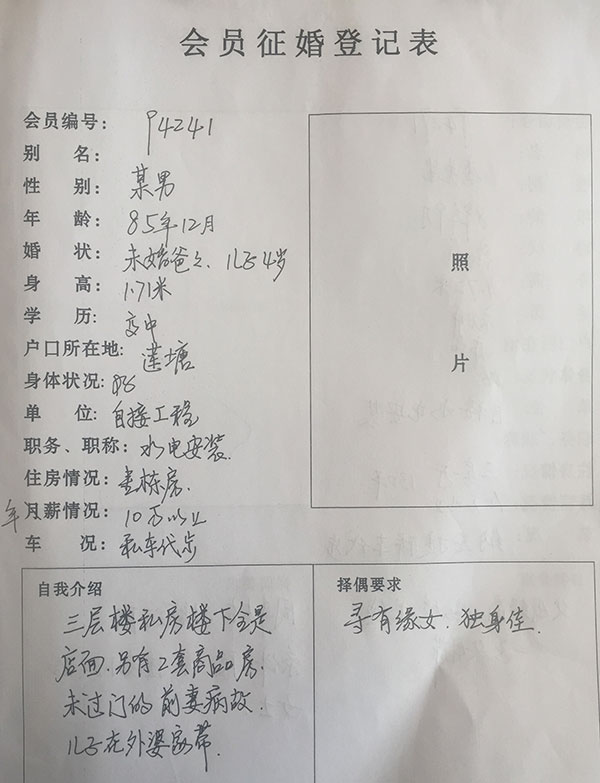 会员征婚登记表
会员编号: 94241
别 名:
性 别: 某男
年 龄: 85年12月
婚 状: 未婚爸爸、儿子4岁
身 高: 1.71米
学 历: 高中
户口所在地: 莲塘
身体状况: 好
单 位: 自接工程
职务、职称: 水电安装.
住房情况: 整栋房.
年、月薪情况: 10万以上
车 况: 私车代步
照
片
自我介绍
三层楼私房楼下全是
店面.另有2套商品房.
未过门的前妻病故.
儿子在外婆家带.
择偶要求
寻有缘女.独身佳.